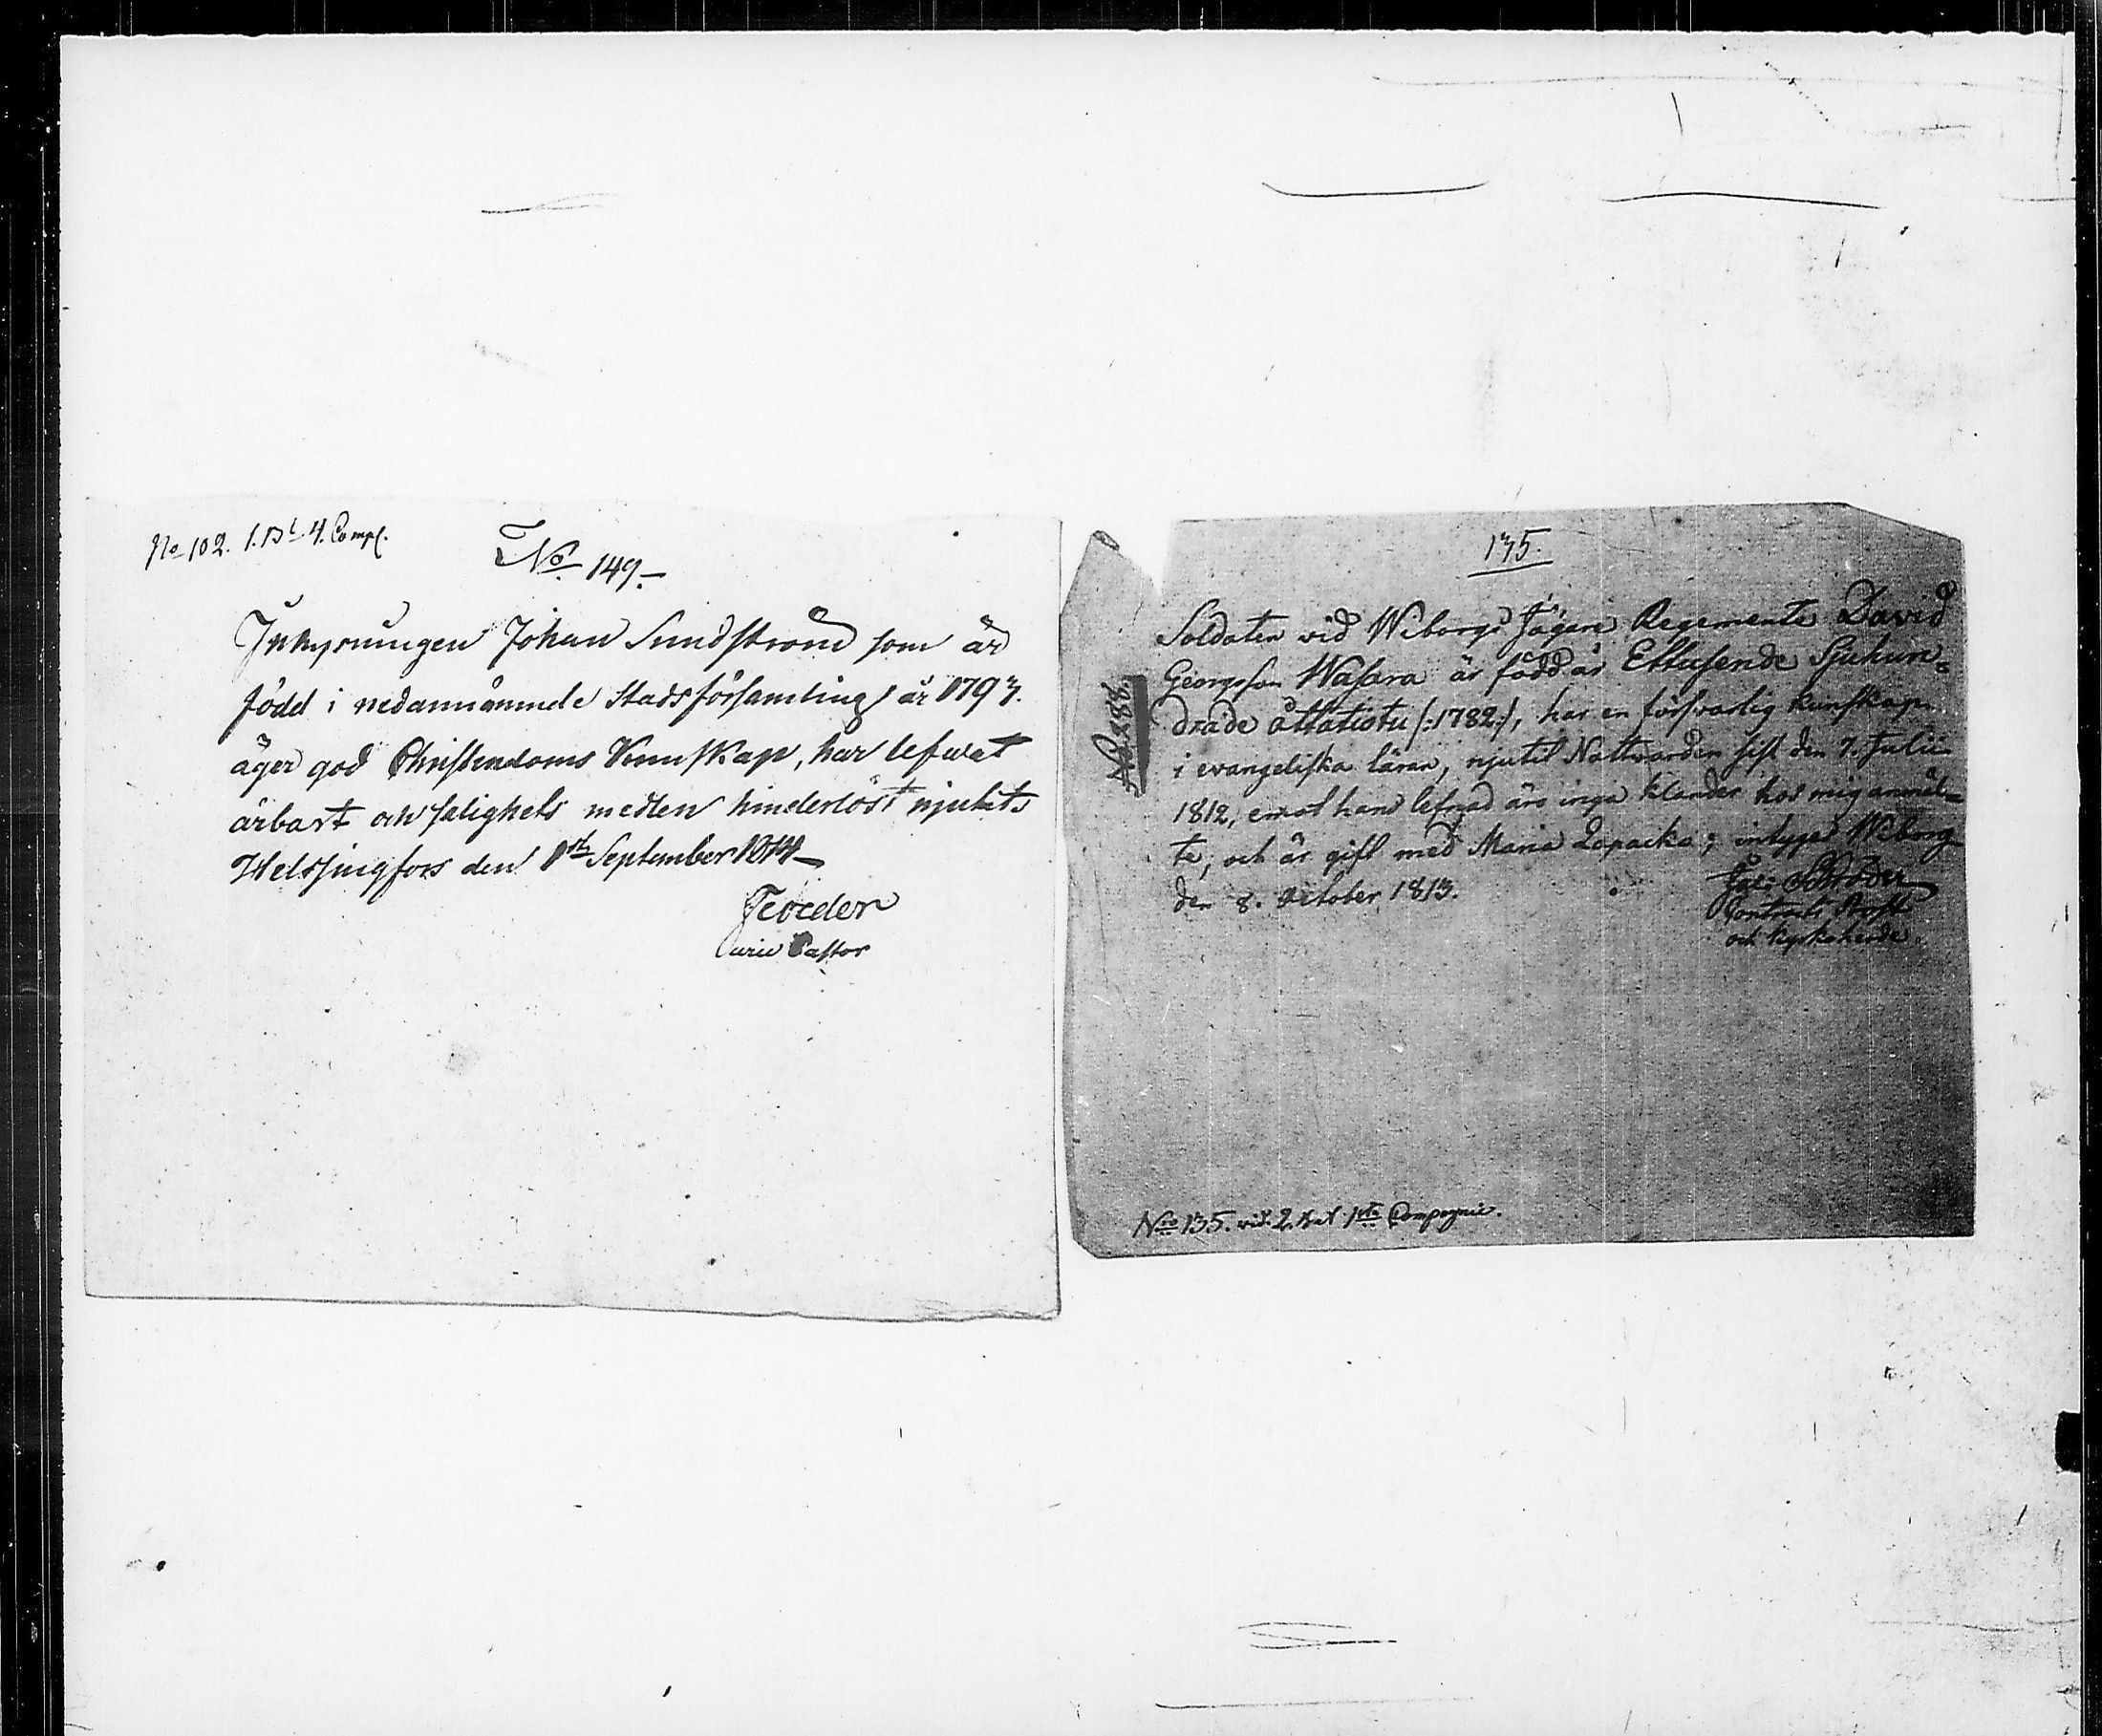 No 102. 1. Bt. 4. Comp.
No 149.
Inhysningen Johan Sundström som är
född i nedannämnde Stadsförsamling år 1793.
äger god Christendoms Kunskap, har lefwat
ärbart och salighets medlen hinderlöst njutit
Helsingfors den 1st September 1814
Vice Pastor
135.
No 288.
Soldaten vid Wiborgs Jägare Regemente David
Georgsson Wasara är född år Ettusende Sjuhun=
drade åttatiotu /:1782:/, har en försvarlig kunskap
i evangeliska läran, njutit Nattvarden sist den 7. Julii
1812, emot hans lefnad äro inga klander hos mig anmäl=
te, och är gift med Maria Lapacka; intygas Wiborg
den 8. October 1813.
Schröder
Contracts Prost
och kyrkoherde.
Nro 135. vid 2. Bat. 1sta Compagnie.